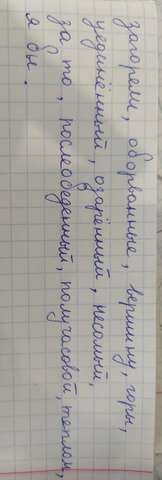 загорели, оборванные, вершину, горы,
уединённый, озарённый, несомый,
за то, послеобеденный, получасовой, теплом,
я бы.